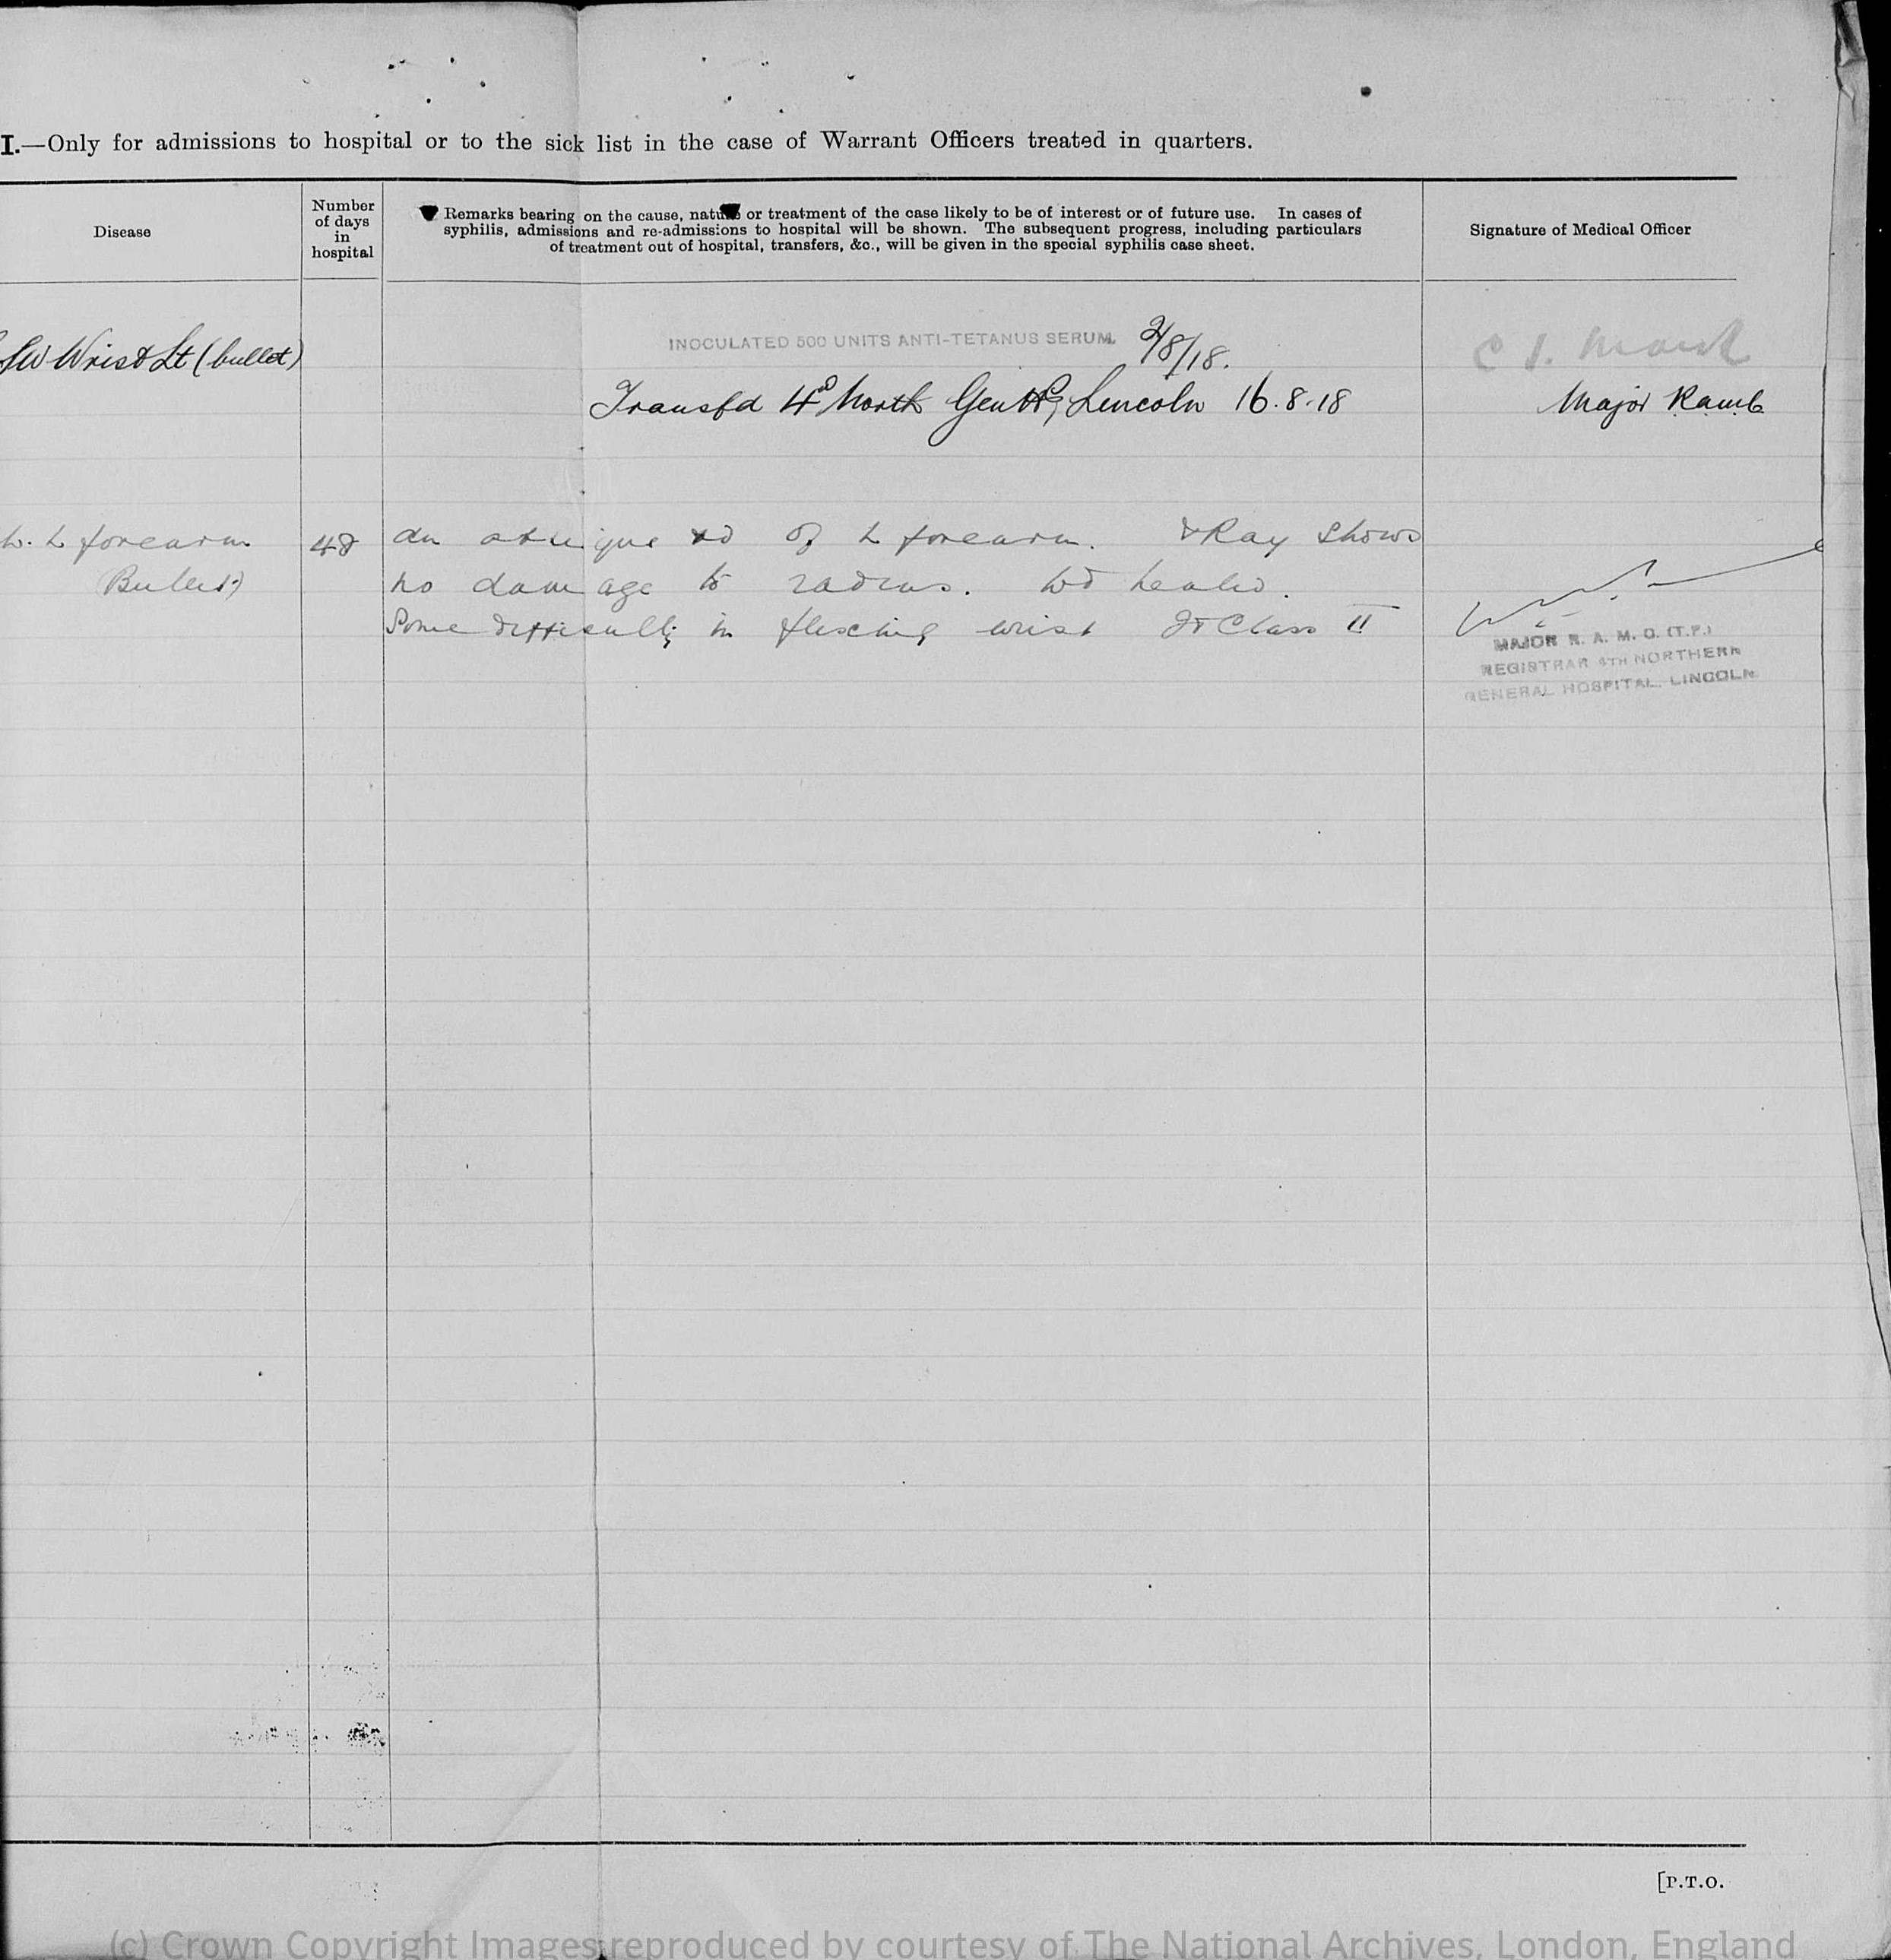 I.—Only for admissions to hospital or to the sick list in the case of Warrant Officers treated in quarters.
Disease
Number
of days
in
hospital
Remarks bearing on the cause, nature or treatment of the case likely to be of interest or of future use. In cases of
syphilis, admissions and re-admissions to hospital will be shown. The subsequent progress, including particulars
of treatment out of hospital, transfers, &c., will be given in the special syphilis case sheet.
Signature of Medical Officer
SW Wrist Lt (bullet)
INOCULATED 500 UNITS ANTI-TETANUS SERUM. 2/8/18.
Transfd 4th North Gen Lincoln 16.8.18
Major Ramc
W. L forearm 48 An oblique wd of L forearm. X Ray shows
Bullet) no damage to radius. Wd healed.
Some difficulty in flexing wrist Class II
MAJOR R. A. M. C. (T.F.)
REGISTRAR 4TH NORTHERN
GENERAL HOSPITAL, LINCOLN
[P.T.O.
(c) Crown Copyright Images reproduced by courtesy of The National Archives, London, England